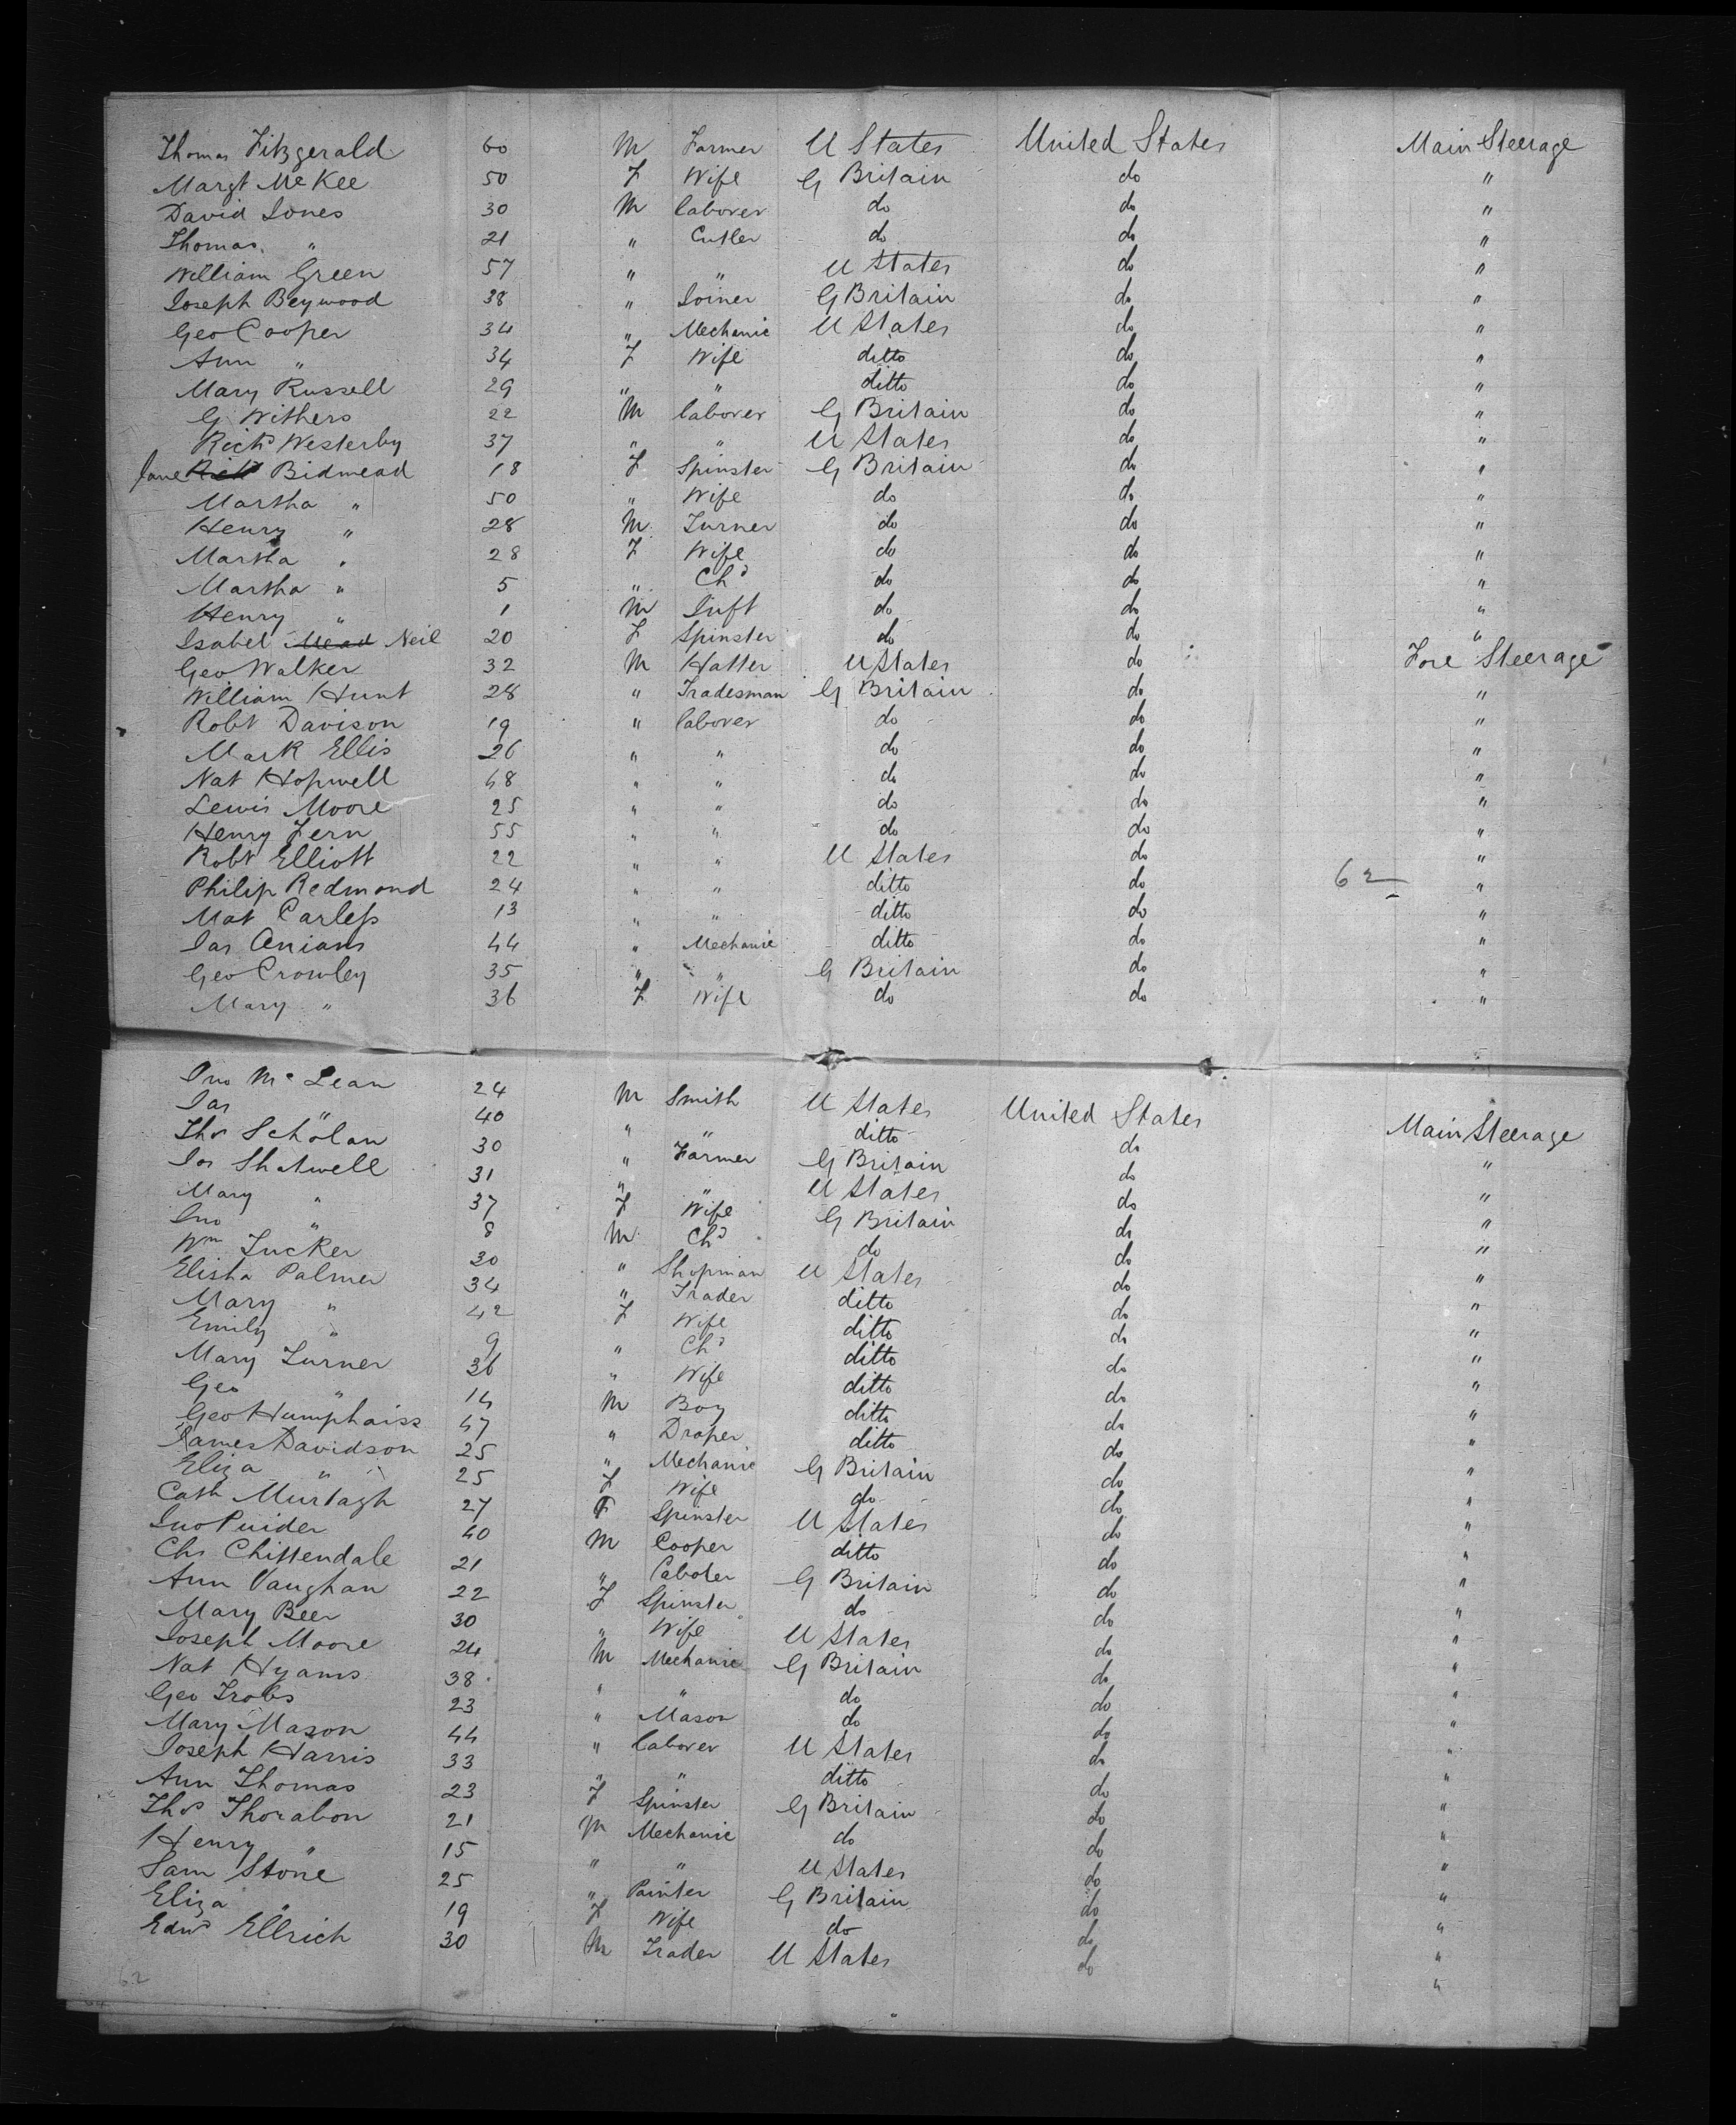 Thomas Fitzgerald 60 M Farmer U States United States Main Steerage
Margt McKee 50 F Wife G Britain do "
David Jones 30 M laborer do do "
Thomas " 21 " Cutler do do "
William Green 57 " " U States do "
Joseph Beywood 38 " Joiner G Britain do "
Geo Cooper 34 " Mechanic U States do "
Ann " 34 F Wife ditto do "
Mary Russell 29 " " ditto do "
G Withers 22 M laborer G Britain do "
Richd Westerby 37 " " U States do "
Jane Richd Bidmead 18 F Spinster G Britain do "
Martha " 50 " Wife do do "
Henry " 28 M Turner do do "
Martha " 28 F Wife do do "
Martha " 5 " Chd do do "
Henry " 1 M Inft do do "
Isabel Mead Neil 20 F Spinster do do "
Geo Walker 32 M Hatter U States do Fore Steerage
William Hunt 28 " Tradesman G Britain do "
Robt Davison 19 " laborer do do "
Mark Ellis 26 " " do do "
Nat Hopwell 48 " " do do "
Lewis Moore 25 " " do do "
Henry Fern 55 " " do do "
Robt Elliott 22 " " U States do "
Philip Redmond 24 " " ditto do 62 "
Mat Carless 13 " " ditto do "
Jas 44 " Mechanic ditto do "
Geo Crowley 35 " " G Britain do "
Mary " 36 F Wife do do "
Jno McLean 24 M Smith U States United States Main Steerage
Jas " 40 " " ditto do "
Thos Scholan 30 " Farmer G Britain do "
Jos Shatwell 31 " " U States do "
Mary " 37 F Wife G Britain do "
Jno " 8 M Chd do do "
Wm Tucker 30 " Shopman U States do "
Elisha Palmer 34 " Trader ditto do "
Mary " 42 F Wife ditto do "
Emily " 9 " Chd ditto do "
Mary Turner 36 " Wife ditto do "
Geo " 14 M Boy ditto do "
Geo Humphaiss 47 " Draper ditto do "
James Davidson 25 " Mechanic G Britain do "
Eliza " 25 F Wife do do "
Cath Murtagh 27 F Spinster U States do "
Jno Puider 40 M Cooper ditto do "
Chs Chittendale 21 " Laborer G Britain do "
Ann Vaughan 22 F Spinster do do "
Mary Beer 30 " Wife U States do "
Joseph Moore 24 M Mechanic G Britain do "
Nat Hyams 38 " " do do "
Geo 23 " Mason do do "
Mary Mason 44 " laborer U States do "
Joseph Harris 33 " " ditto do "
Ann Thomas 23 F Spinster G Britain do "
Thos Thorabon 21 M Mechanic do do "
Henry " 15 " " U States do "
Sam Stone 25 " Painter G Britain do "
Eliza " 19 F Wife do do "
Edwd Ellrich 30 M Trader U States do "
62